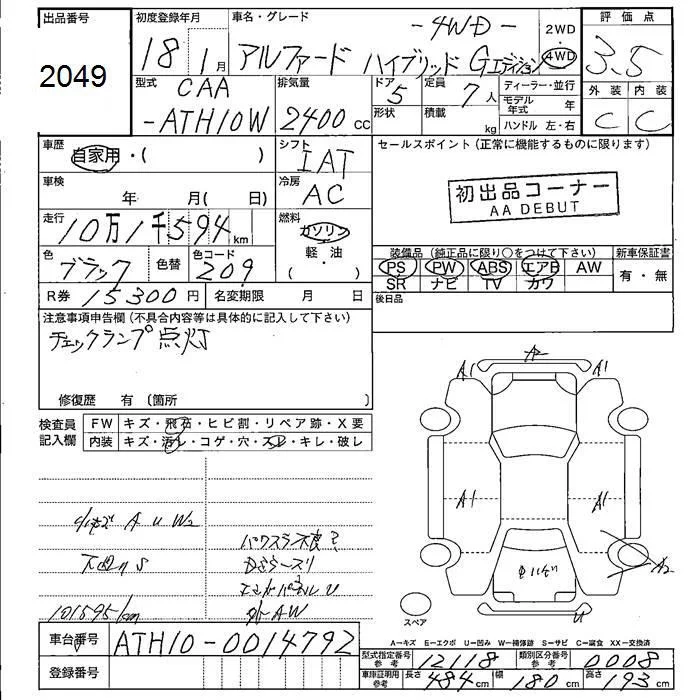 出品番号 初度登録年月 車名・グレード 評価点
2049 18年1月 アルファード ハイブリッド Gエディション -4WD- 2WD 4WD 3.5
型式 CAA 排気量 ドア 5 定員 7人 ディーラー・並行 外装 内装
-ATH10W 2400cc 形状 積載 kg モデル年式 年 C C
ハンドル 左・右
車歴 自家用・( ) シフト IAT セールスポイント (正常に機能するものに限ります)
車検 年 月( 日) 冷房 AC 初出品コーナー
AA DEBUT
走行 10万1千594km 燃料 ガソリン
軽・油
( ・ )
色 ブラック 色替 色コード 209 装備品 (純正品に限り○をつけて下さい) 新車保証書
PS PW ABS エアB AW 有・無
SR ナビ TV カワ
R券 15300円 名変期限 月 日 後日品
注意事項申告欄 (不具合内容等は具体的に記入して下さい)
チェックランプ点灯
修復歴 有 (箇所 )
検査員 FW キズ・飛石・ヒビ割・リペア跡・X要
記入欄 内装 キズ・汚レ・コゲ・穴・スレ・キレ・破レ
A2
A1 A1
A1 A1
A2
U
A U W2
S
パワスラ不良?
U
AW
101595km
スペア
A-キズ E-エクボ U-凹み W-補修跡 S-サビ C-腐食 XX-交換済
車台番号 ATH10-0014792
型式指定番号 参考 12118 類別区分番号 参考 0008
登録番号 車庫証明用 参考 長さ 484cm 幅 180cm 高さ 193cm